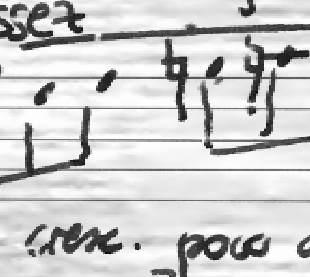 ssez
3
cresc. poco